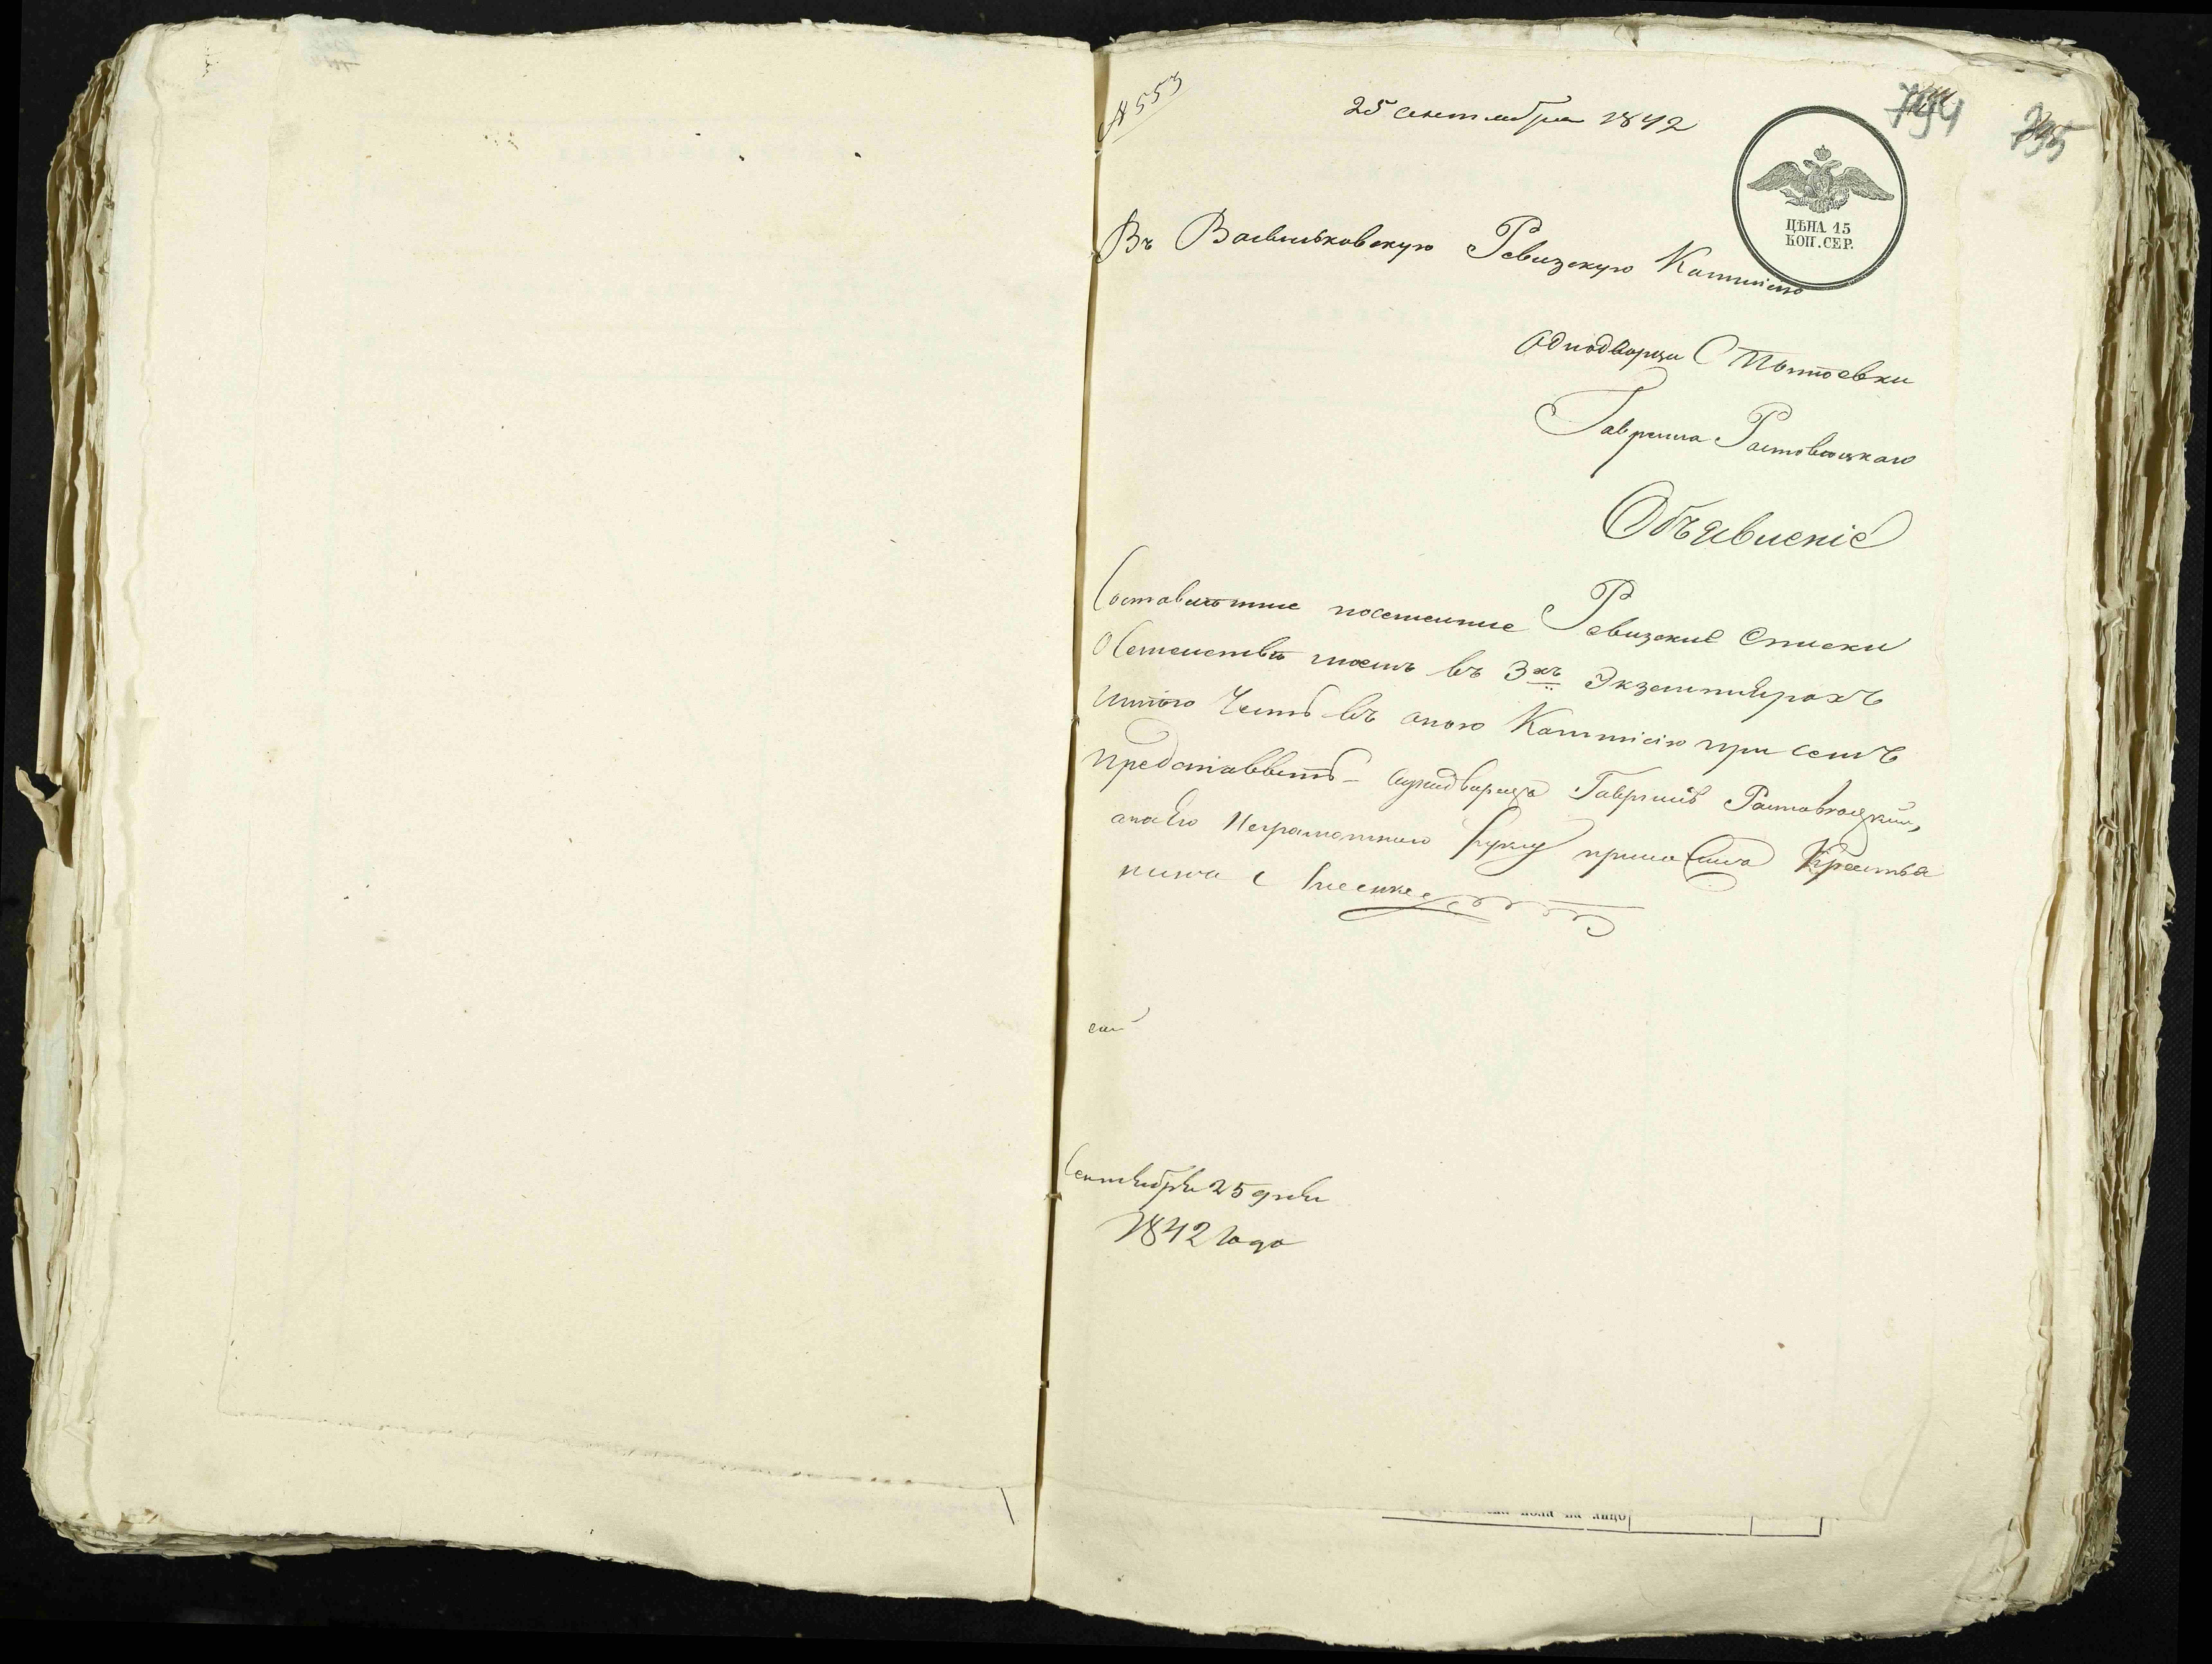 № 553
25 сентября 1842
794
795
ЦѢНА 15
КОП. СЕР.
Въ Васильковскую Ревизскую Коммисію
Однодворца С Мытовки
Гавриила Ростовецкаго
Объявленіе
Составленные посемейные Ревизкие Списки
О Семействѣ моемъ въ 3хъ Экземплярахъ
имѣю Честь въ оною Коммисію при семъ
представить однодворецъ Гаврiилъ
а по Его Неграмотного руку приложилъ Крестья
нинъ
Сентября 25 дня
1842 года
пола на лицо